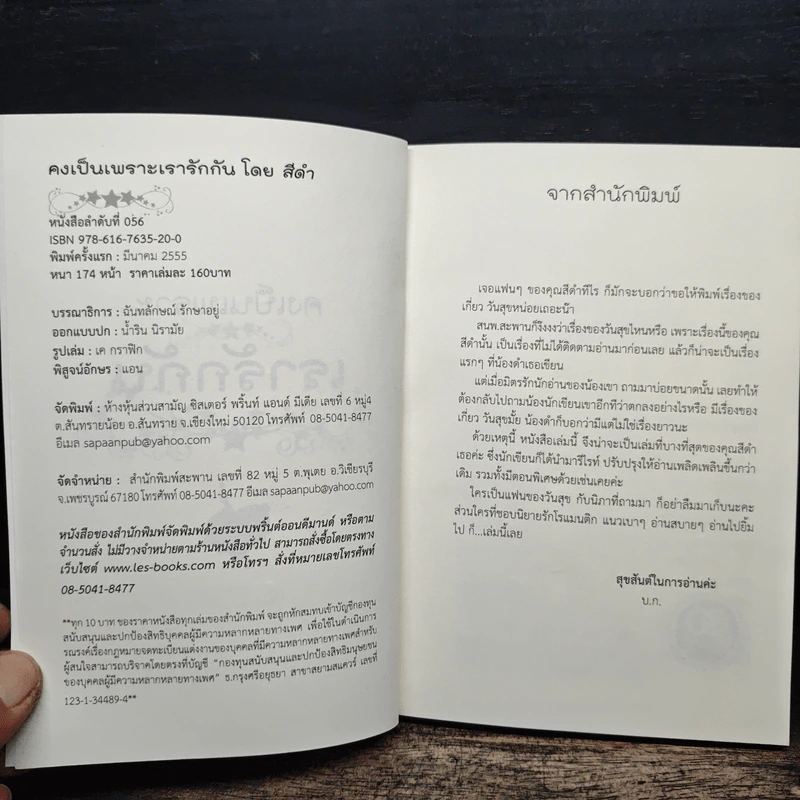 คงเป็นเพราะเรารักกัน โดย สีดำ
หนังสือลำดับที่ 056
ISBN 978-616-7635-20-0
พิมพ์ครั้งแรก : มีนาคม 2555
หนา 174 หน้า ราคาเล่มละ 160บาท
บรรณาธิการ : ฉันทลักษณ์ รักษาอยู่
ออกแบบปก : น้ำริน นิรามัย
รูปเล่ม : เค กราฟิก
พิสูจน์อักษร : แอน
จัดพิมพ์ : ห้างหุ้นส่วนสามัญ ซิสเตอร์ พริ้นท์ แอนด์ มีเดีย เลขที่ 6 หมู่4
ต.สันทรายน้อย อ.สันทราย จ.เชียงใหม่ 50120 โทรศัพท์ 08-5041-8477
อีเมล sapaanpub@yahoo.com
จัดจำหน่าย : สำนักพิมพ์สะพาน เลขที่ 82 หมู่ 5 ต.พุเตย อ.วิเชียรบุรี
จ.เพชรบูรณ์ 67180 โทรศัพท์ 08-5041-8477 อีเมล sapaanpub@yahoo.com
หนังสือของสำนักพิมพ์จัดพิมพ์ด้วยระบบพริ้นต์ออนดีมานด์ หรือตาม
จำนวนสั่ง ไม่มีวางจำหน่ายตามร้านหนังสือทั่วไป สามารถสั่งซื้อโดยตรงทาง
เว็บไซต์ www.les-books.com หรือโทรฯ สั่งที่หมายเลขโทรศัพท์
08-5041-8477
**ทุก 10 บาท ของราคาหนังสือทุกเล่มของสำนักพิมพ์ จะถูกหักสมทบเข้าบัญชีกองทุน
สนับสนุนและปกป้องสิทธิบุคคลผู้มีความหลากหลายทางเพศ เพื่อใช้ในดำเนินการ
รณรงค์เรื่องกฎหมายจดทะเบียนแต่งงานของบุคคลที่มีความหลากหลายทางเพศสำหรับ
ผู้สนใจสามารถบริจาคโดยตรงที่บัญชี "กองทุนสนับสนุนและปกป้องสิทธิมนุษยชน
ของบุคคลผู้มีความหลากหลายทางเพศ" ธ.กรุงศรีอยุธยา สาขาสยามสแควร์ เลขที่
123-1-34489-4**
จากสำนักพิมพ์
เจอแฟนๆ ของคุณสีดำทีไร ก็มักจะบอกว่าขอให้พิมพ์เรื่องของ
เกี่ยว วันสุขหน่อยเถอะน๊า
สนพ.สะพานก็งึงงงว่าเรื่องของวันสุขไหนหรือ เพราะเรื่องนี้ของคุณ
สีดำนั้น เป็นเรื่องที่ไม่ได้ติดตามอ่านมาก่อนเลย แล้วก็น่าจะเป็นเรื่อง
แรกๆ ที่น้องดำเธอเขียน
แต่เมื่อมิตรรักนักอ่านของน้องเขา ถามมาบ่อยขนาดนั้น เลยทำให้
ต้องกลับไปถามน้องนักเขียนเขาอีกทีว่าตกลงอย่างไรหรือ มีเรื่องของ
เกี่ยว วันสุขมั้ย น้องดำก็บอกว่ามีแต่ไม่ใช่เรื่องยาวนะ
ด้วยเหตุนี้ หนังสือเล่มนี้ จึงน่าจะเป็นเล่มที่บางที่สุดของคุณสีดำ
เธอค่ะ ซึ่งนักเขียนก็ได้นำมารีไรท์ ปรับปรุงให้อ่านเพลิดเพลินขึ้นกว่า
เดิม รวมทั้งมีตอนพิเศษด้วยเช่นเคยค่ะ
ใครเป็นแฟนของวันสุข กับนิภาที่ถามมา ก็อย่าลืมมาเก็บนะคะ
ส่วนใครที่ชอบนิยายรักโรแมนติก แนวเบาๆ อ่านสบายๆ อ่านไปยิ้ม
ไป ก็...เล่มนี้เลย
สุขสันต์ในการอ่านค่ะ
บ.ก.